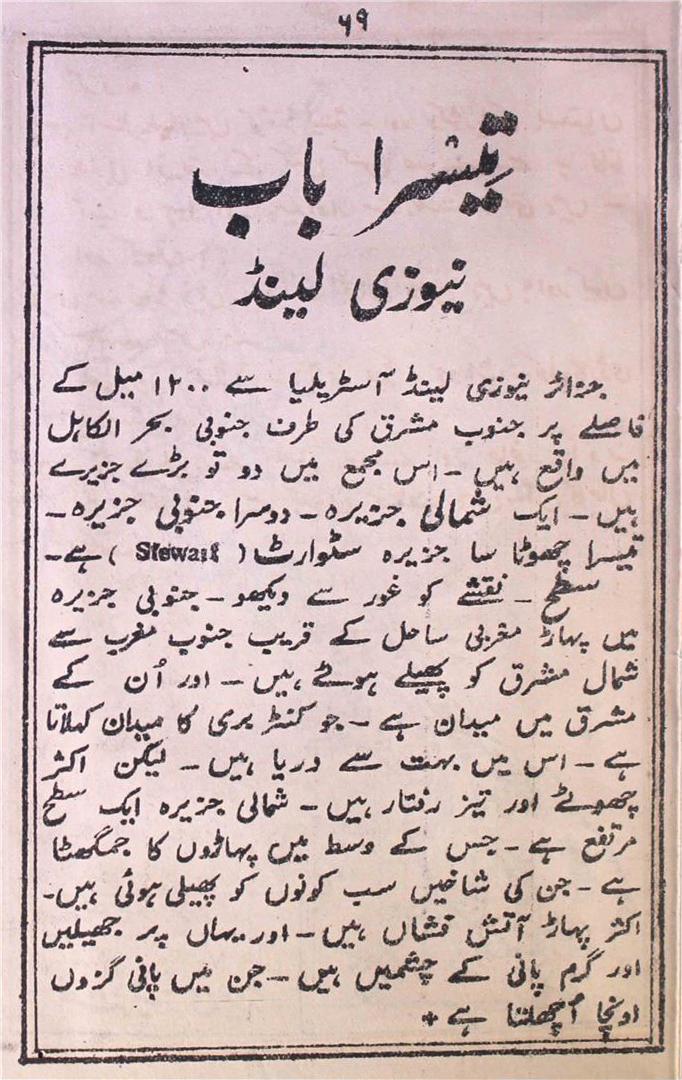 ۶۹
تیسرا باب
نیوزی لینڈ
جزائر نیوزی لینڈ آسٹریلیا سے ۱۲۰۰ میل کے
فاصلے پر جنوب مشرق کی طرف جنوبی بحر الکاہل
میں واقع ہیں - اس مجمع میں دو تو بڑے جزیرے
ہیں - ایک شمالی جزیرہ - دوسرا جنوبی جزیرہ -
تیسرا چھوٹا سا جزیرہ سٹوارٹ ( Stewart ) ہے -
سطح - نقشے کو غور سے دیکھو - جنوبی جزیرہ
میں پہاڑ مغربی ساحل کے قریب جنوب مغرب سے
شمال مشرق کو پھیلے ہوئے ہیں - اور اُن کے
مشرق میں میدان ہے - جو کنٹر بری کا میدان کہلاتا
ہے - اس میں بہت سے دریا ہیں - لیکن اکثر
چھوٹے اور تیز رفتار ہیں - شمالی جزیرہ ایک سطح
مرتفع ہے - جس کے وسط میں پہاڑوں کا جمگھٹا
ہے - جن کی شاخیں سب کونوں کو پھیلی ہوئی ہیں -
اکثر پہاڑ آتش فشاں ہیں - اور یہاں پر جھیلیں
اور گرم پانی کے چشمیں ہیں - جن میں پانی گزوں
اونچا اُچھلتا ہے +